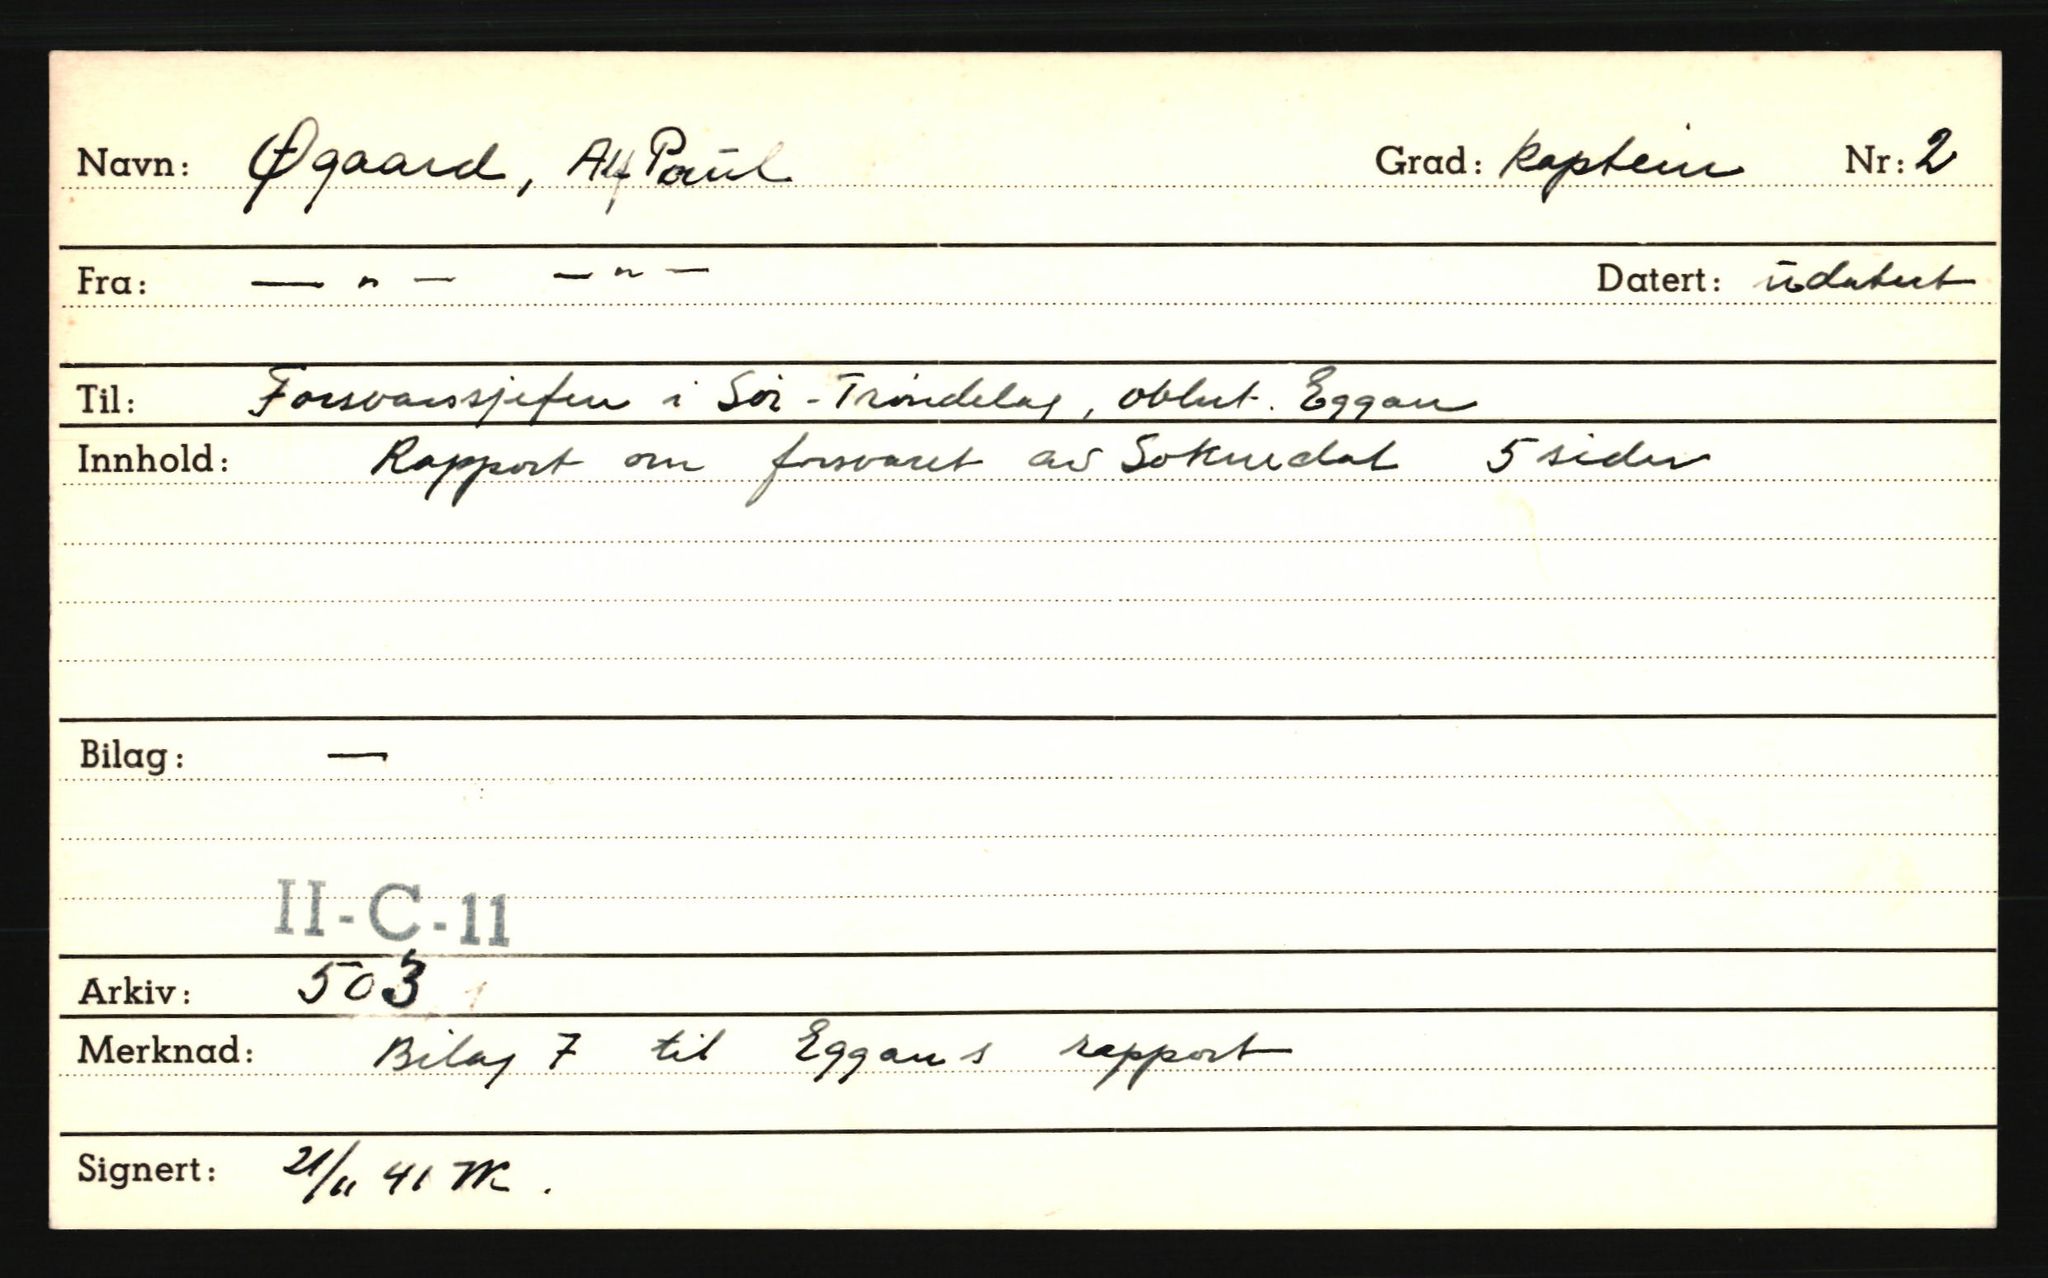 Navn: Øgaard, Alf Paul Grad: kaptein Nr: 2
Fra: — " — — " — Datert: udatert
Til: Forsvarssjefen i Sør-Trøndelag, obltnt. Eggan
Innhold: Rapport om forsvaret av Soknedal 5 sider
Bilag: —
II-C-11
Arkiv: 503
Merknad: Bilag 7 til Eggans rapport
Signert: 21/11 41